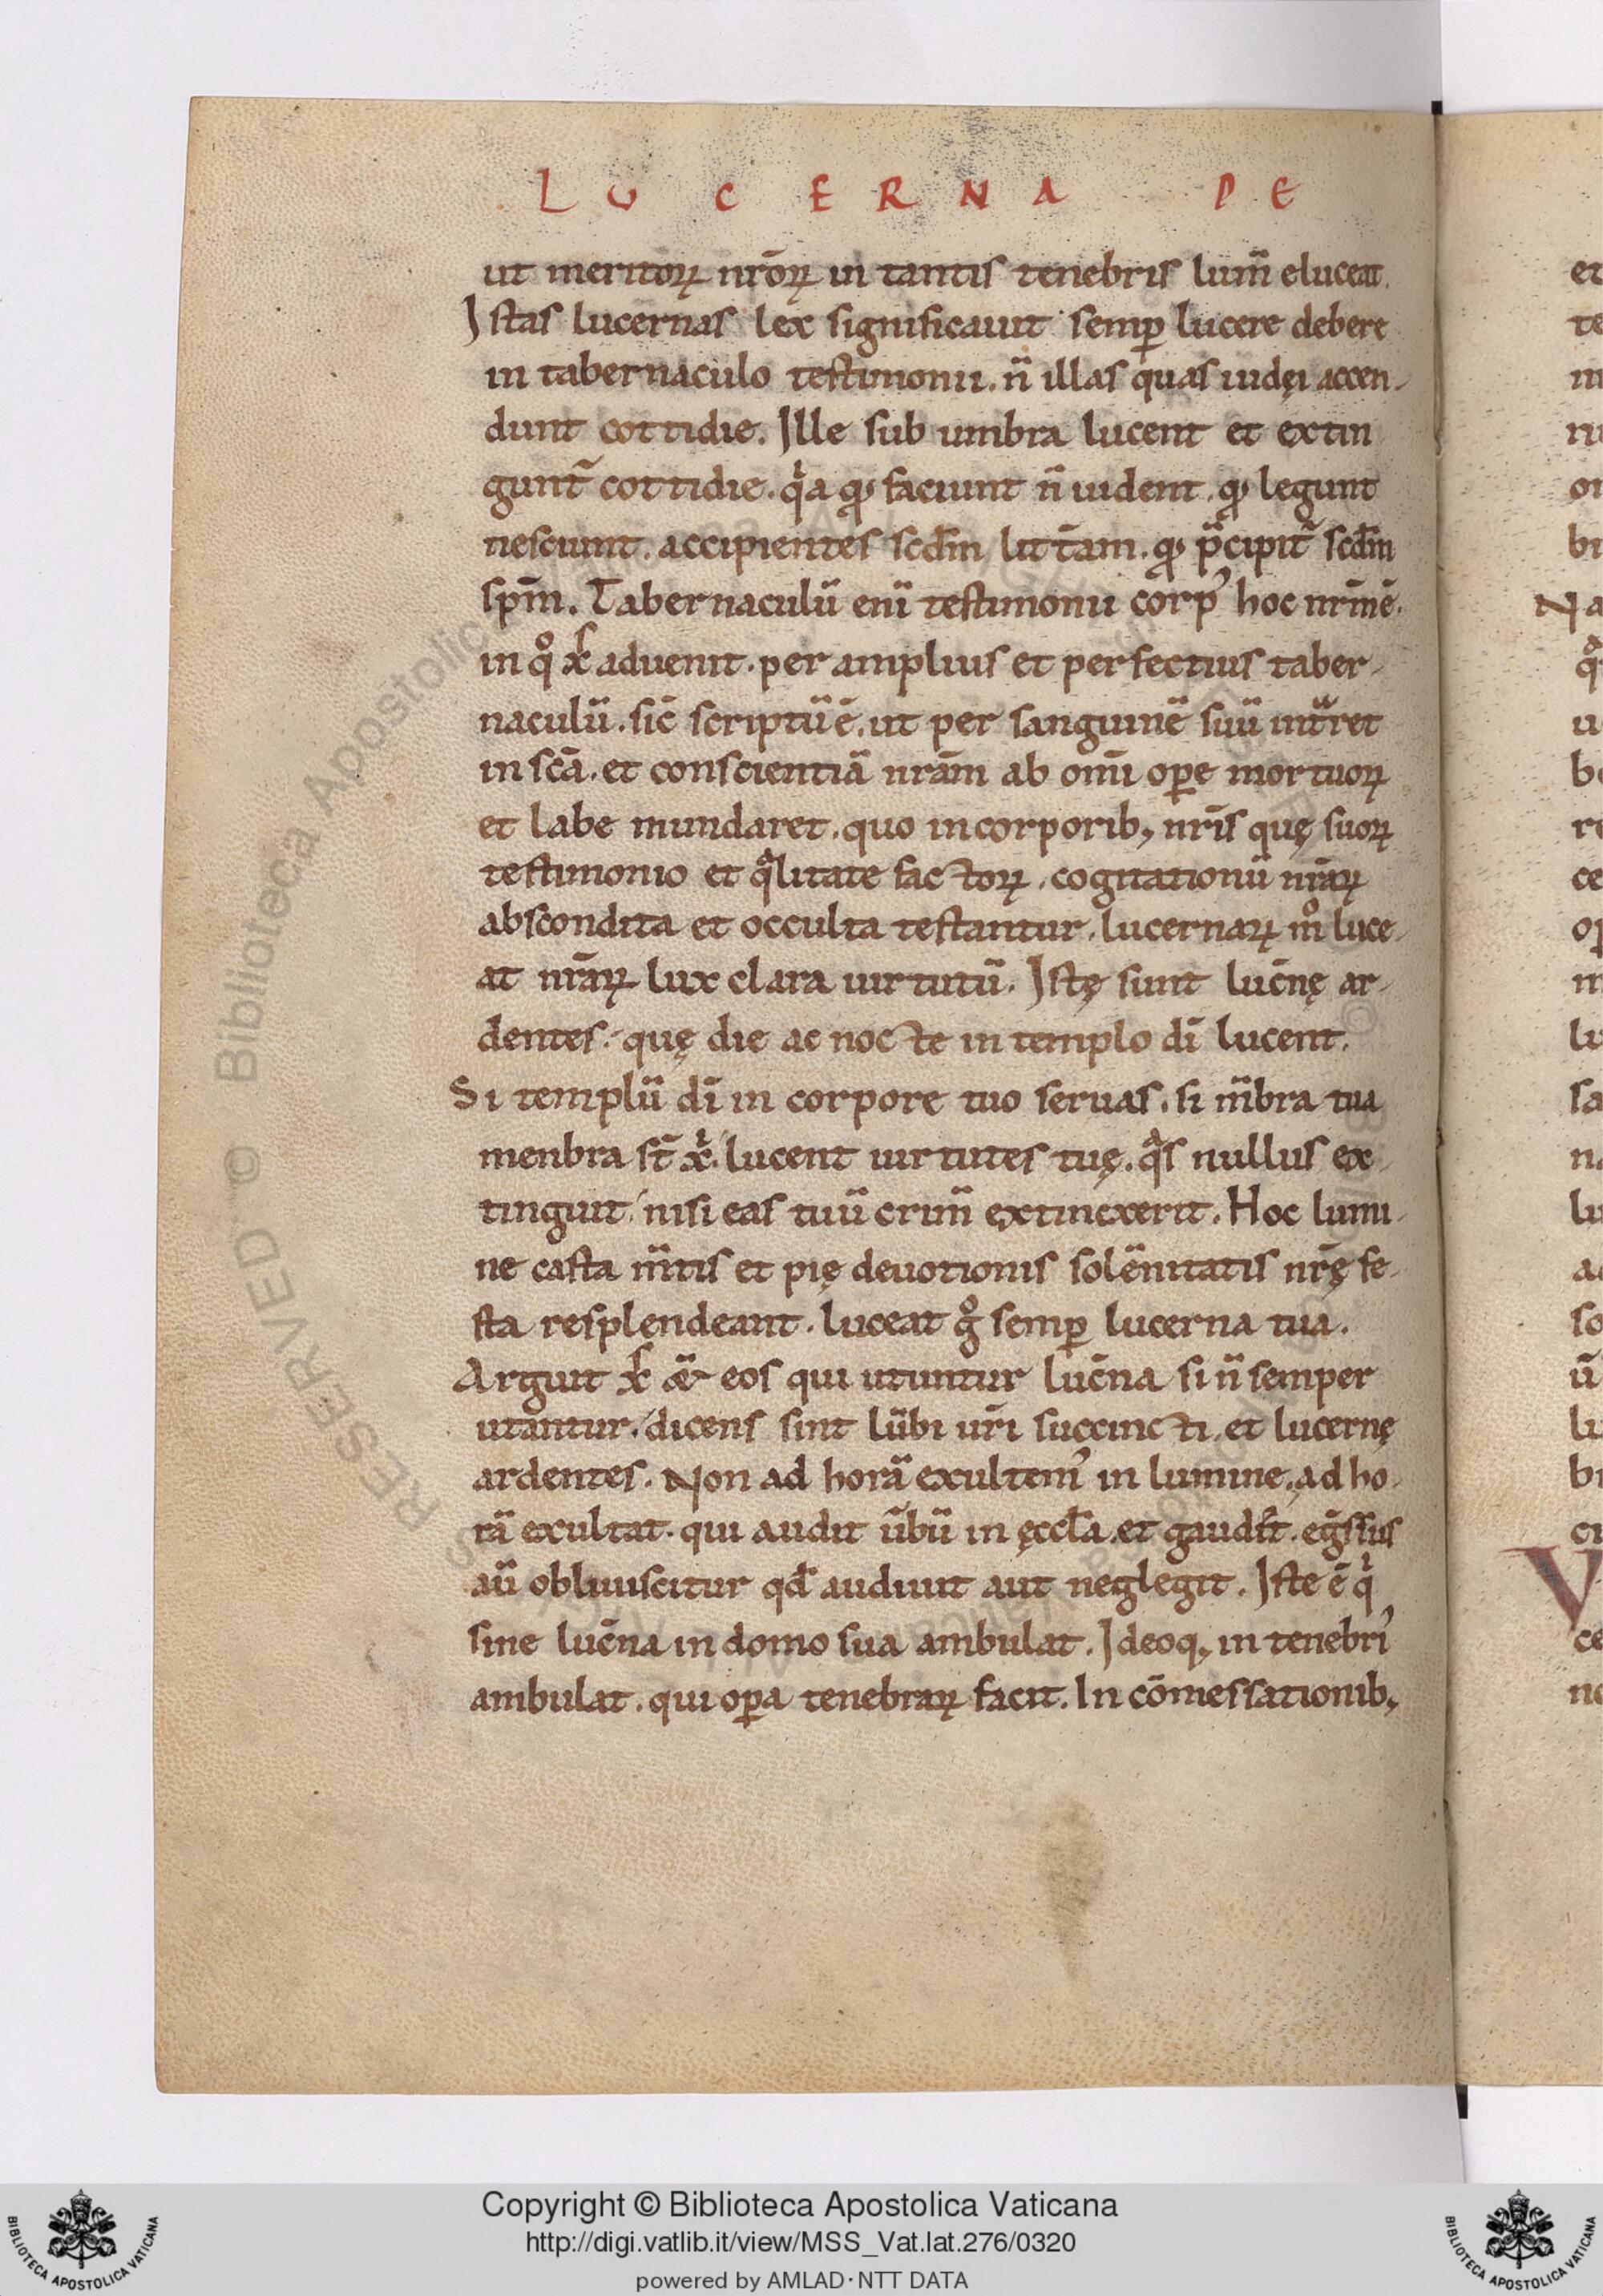 LUCERNA PE
ut meritoꝝ nr̄oꝝ in tantis tenebris lum̄ eluceat.
Istas lucernas lex significauit semꝑ lucere debere
in tabernaculo testimonii. n̄ illas quas iudęi accen-
dunt cottidie. Ille sub umbra lucent et extin
gunt̄ cottidie. qͥa qꝫ faciunt n̄ uident. qꝫ legunt
nesciunt. accipientes scd̄m litt̄am. qꝫ p̄cipit̄ scd̄m
sp̄m. Tabernaculū enī testimonii corpꝰ hoc nr̄m ē.
in qͦ xp̄s aduenit. per amplius et perfectius taber-
naculū. sic̄ scriptū ē. ut per sanguinē suū int̄ret
in sc̄a. et conscientiā nr̄am ab om̄i oꝑe mortuoꝝ
et labe mundaret. quo in corporibꝫ nr̄is quę suoꝝ
testimonio et qͣlitate factoꝝ. cogitationū nr̄aꝝ
abscondita et occulta testantur. lucernaꝝ mͦ luce-
at nr̄aꝝ lux clara uirtutū. Istę sunt luc̄nę ar-
dentes. quę die ac nocte in templo dī lucent.
Si templū dī in corpore tuo seruas. si m̄bra tua
menbra st̄ xͥ. lucent uirtutes tuę. qͣs nullus ex-
tinguit. nisi eas tuū crim̄ extinxerit. Hoc lumi-
ne casta m̄tis et pię deuotionis solēnitatis nr̄ę fe-
sta resplendeant. luceat gͦ semꝑ lucerna tua.
Arguit xp̄s eos qui utuntur luc̄na si n̄ semper
utantur. dicens sint lūbi ur̄i succincti. et lucernę
ardentes. Non ad horā exultemꝰ in lumine. ad ho-
rā exultat. qui audit ūbū in ęccl̄a. et gaud&. eḡssus
aū obliuiscitur qd̄ audiuit aut neglegit. Iste ē qͥ
sine luc̄na in domo sua ambulat. Ideoqꝫ in tenebriꝰ
ambulat. qui oꝑa tenebraꝝ facit. In cōmessationibꝫ
Copyright © Biblioteca Apostolica Vaticana
http://digi.vatlib.it/view/MSS_Vat.lat.276/0320
powered by AMLAD·NTT DATA